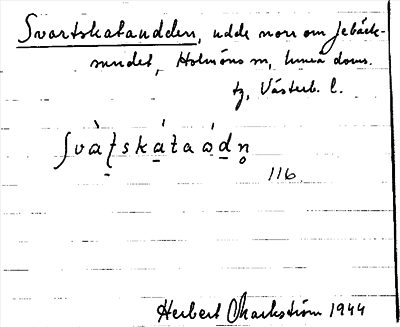 Svartskataudden, udde norr om Jebäck-
sundet, Holmöns sn, Umeå doms.
tg, Västerb. l.
ʃvàʈskátaa̍dn̥
116.
Herbert Markström 1944